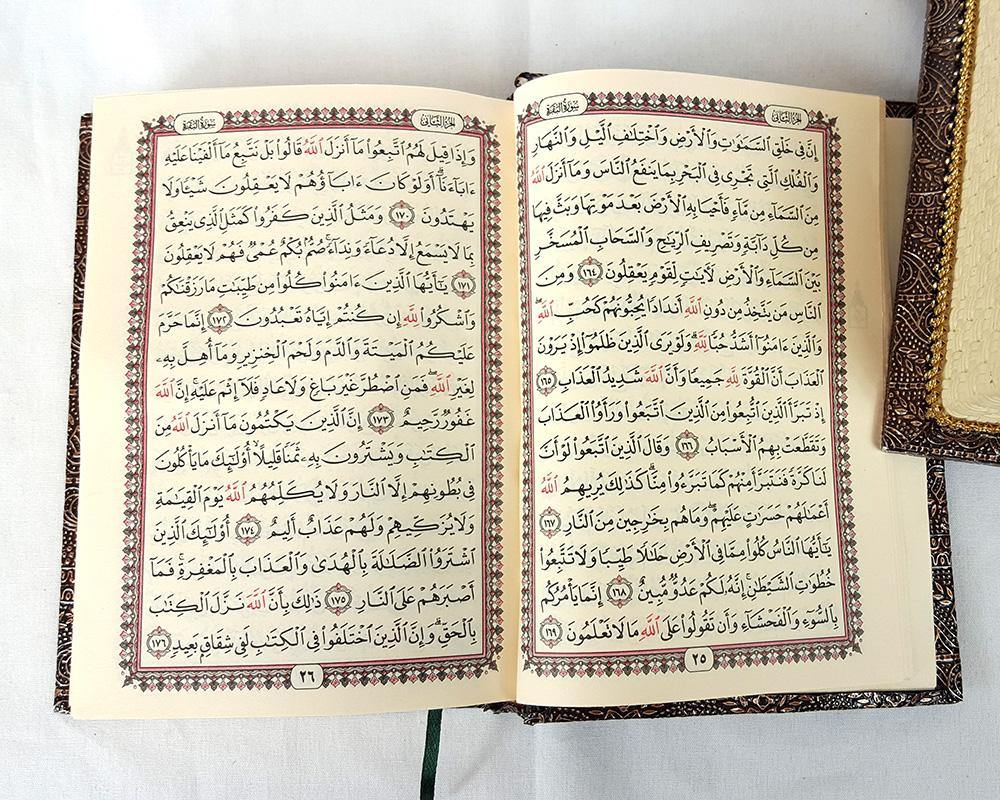 سورة البقرة
الجزء الثاني
إِنَّ فِي خَلْقِ ٱلسَّمَٰوَٰتِ وَٱلْأَرْضِ وَٱخْتِلَٰفِ ٱلَّيْلِ وَٱلنَّهَارِ
وَٱلْفُلْكِ ٱلَّتِي تَجْرِي فِي ٱلْبَحْرِ بِمَا يَنفَعُ ٱلنَّاسَ وَمَآ أَنزَلَ ٱللَّهُ
مِنَ ٱلسَّمَآءِ مِن مَّآءٍ فَأَحْيَا بِهِ ٱلْأَرْضَ بَعْدَ مَوْتِهَا وَبَثَّ فِيهَا
مِن كُلِّ دَآبَّةٍ وَتَصْرِيفِ ٱلرِّيَٰحِ وَٱلسَّحَابِ ٱلْمُسَخَّرِ
بَيْنَ ٱلسَّمَآءِ وَٱلْأَرْضِ لَءَايَٰتٍ لِّقَوْمٍ يَعْقِلُونَ ١٦٤ وَمِنَ
ٱلنَّاسِ مَن يَتَّخِذُ مِن دُونِ ٱللَّهِ أَندَادًا يُحِبُّونَهُمْ كَحُبِّ ٱللَّهِ ۖ
وَٱلَّذِينَ ءَامَنُوٓا۟ أَشَدُّ حُبًّا لِّلَّهِ ۗ وَلَوْ يَرَى ٱلَّذِينَ ظَلَمُوٓا۟ إِذْ يَرَوْنَ
ٱلْعَذَابَ أَنَّ ٱلْقُوَّةَ لِلَّهِ جَمِيعًا وَأَنَّ ٱللَّهَ شَدِيدُ ٱلْعَذَابِ ١٦٥
إِذْ تَبَرَّأَ ٱلَّذِينَ ٱتُّبِعُوا۟ مِنَ ٱلَّذِينَ ٱتَّبَعُوا۟ وَرَأَوُا۟ ٱلْعَذَابَ
وَتَقَطَّعَتْ بِهِمُ ٱلْأَسْبَابُ ١٦٦ وَقَالَ ٱلَّذِينَ ٱتَّبَعُوا۟ لَوْ أَنَّ
لَنَا كَرَّةً فَنَتَبَرَّأَ مِنْهُمْ كَمَا تَبَرَّءُوا۟ مِنَّا ۗ كَذَٰلِكَ يُرِيهِمُ ٱللَّهُ
أَعْمَٰلَهُمْ حَسَرَٰتٍ عَلَيْهِمْ ۖ وَمَا هُم بِخَٰرِجِينَ مِنَ ٱلنَّارِ ١٦٧
يَٰٓأَيُّهَا ٱلنَّاسُ كُلُوا۟ مِمَّا فِي ٱلْأَرْضِ حَلَٰلًا طَيِّبًا وَلَا تَتَّبِعُوا۟
خُطُوَٰتِ ٱلشَّيْطَٰنِ ۚ إِنَّهُۥ لَكُمْ عَدُوٌّ مُّبِينٌ ١٦٨ إِنَّمَا يَأْمُرُكُم
بِٱلسُّوٓءِ وَٱلْفَحْشَآءِ وَأَن تَقُولُوا۟ عَلَى ٱللَّهِ مَا لَا تَعْلَمُونَ ١٦٩
٢٥
الجزء الثاني
سورة البقرة
وَإِذَا قِيلَ لَهُمُ ٱتَّبِعُوا۟ مَآ أَنزَلَ ٱللَّهُ قَالُوا۟ بَلْ نَتَّبِعُ مَآ أَلْفَيْنَا عَلَيْهِ
ءَابَآءَنَآ ۗ أَوَلَوْ كَانَ ءَابَآؤُهُمْ لَا يَعْقِلُونَ شَيْـًٔا وَلَا
يَهْتَدُونَ ١٧٠ وَمَثَلُ ٱلَّذِينَ كَفَرُوا۟ كَمَثَلِ ٱلَّذِي يَنْعِقُ
بِمَا لَا يَسْمَعُ إِلَّا دُعَآءً وَنِدَآءً ۚ صُمٌّۢ بُكْمٌ عُمْيٌ فَهُمْ لَا يَعْقِلُونَ
١٧١ يَٰٓأَيُّهَا ٱلَّذِينَ ءَامَنُوا۟ كُلُوا۟ مِن طَيِّبَٰتِ مَا رَزَقْنَٰكُمْ
وَٱشْكُرُوا۟ لِلَّهِ إِن كُنتُمْ إِيَّاهُ تَعْبُدُونَ ١٧٢ إِنَّمَا حَرَّمَ
عَلَيْكُمُ ٱلْمَيْتَةَ وَٱلدَّمَ وَلَحْمَ ٱلْخِنزِيرِ وَمَآ أُهِلَّ بِهِۦ
لِغَيْرِ ٱللَّهِ ۖ فَمَنِ ٱضْطُرَّ غَيْرَ بَاغٍ وَلَا عَادٍ فَلَآ إِثْمَ عَلَيْهِ ۚ إِنَّ ٱللَّهَ
غَفُورٌ رَّحِيمٌ ١٧٣ إِنَّ ٱلَّذِينَ يَكْتُمُونَ مَآ أَنزَلَ ٱللَّهُ مِنَ
ٱلْكِتَٰبِ وَيَشْتَرُونَ بِهِۦ ثَمَنًا قَلِيلًا ۙ أُو۟لَٰٓئِكَ مَا يَأْكُلُونَ
فِي بُطُونِهِمْ إِلَّا ٱلنَّارَ وَلَا يُكَلِّمُهُمُ ٱللَّهُ يَوْمَ ٱلْقِيَٰمَةِ
وَلَا يُزَكِّيهِمْ وَلَهُمْ عَذَابٌ أَلِيمٌ ١٧٤ أُو۟لَٰٓئِكَ ٱلَّذِينَ
ٱشْتَرَوُا۟ ٱلضَّلَٰلَةَ بِٱلْهُدَىٰ وَٱلْعَذَابَ بِٱلْمَغْفِرَةِ ۚ فَمَآ
أَصْبَرَهُمْ عَلَى ٱلنَّارِ ١٧٥ ذَٰلِكَ بِأَنَّ ٱللَّهَ نَزَّلَ ٱلْكِتَٰبَ
بِٱلْحَقِّ ۗ وَإِنَّ ٱلَّذِينَ ٱخْتَلَفُوا۟ فِي ٱلْكِتَٰبِ لَفِي شِقَاقٍۭ بَعِيدٍ ١٧٦
٢٦